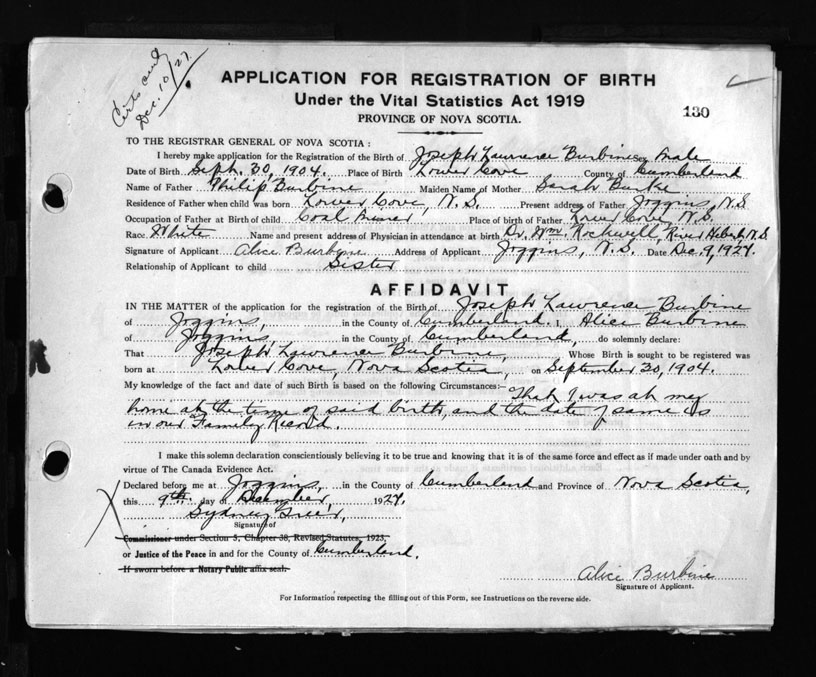 Certs and
Dec. 10/27
APPLICATION FOR REGISTRATION OF BIRTH
Under the Vital Statistics Act 1919
130
PROVINCE OF NOVA SCOTIA.
TO THE REGISTRAR GENERAL OF NOVA SCOTIA :
I hereby make application for the Registration of the Birth of Joseph Lawrence Burbine Sex Male
Date of Birth Sept. 30, 1904. Place of Birth Lower Cove County of Cumberland
Name of Father Philip Burbine Maiden Name of Mother Sarah Burke
Residence of Father when child was born Lower Cove, N.S. Present address of Father Joggins, N.S
Occupation of Father at Birth of child Coal Miner Place of birth of Father Lower Cove, N.S.
Race White Name and present address of Physician in attendance at birth Dr. Wm. Rockwell, River Hebert, N.S.
Signature of Applicant Alice Burbine Address of Applicant Joggins, N.S. Date Dec. 9, 1927.
Relationship of Applicant to child Sister
AFFIDAVIT
IN THE MATTER of the application for the registration of the Birth of Joseph Lawrence Burbine
of Joggins, in the County of Cumberland. I, Alice Burbine
of Joggins, in the County of Cumberland, do solemnly declare:
That Joseph Lawrence Burbine, Whose Birth is sought to be registered was
born at Lower Cove, Nova Scotia, on September 30, 1904.
My knowledge of the fact and date of such Birth is based on the following Circumstances:– That I was at my
home at the time of said birth, and the date of same is
in our Family Record.
I make this solemn declaration conscientiously believing it to be true and knowing that it is of the same force and effect as if made under oath and by
virtue of The Canada Evidence Act.
Declared before me at Joggins, in the County of Cumberland and Province of Nova Scotia,
this 9th. day of December, 1927.
Sydney
Signature of
Commissioner under Section 5, Chapter 38, Revised Statutes, 1923.
or Justice of the Peace in and for the County of Cumberland.
If sworn before a Notary Public affix seal.
Alice Burbine
Signature of Applicant.
For Information respecting the filling out of this Form, see Instructions on the reverse side.